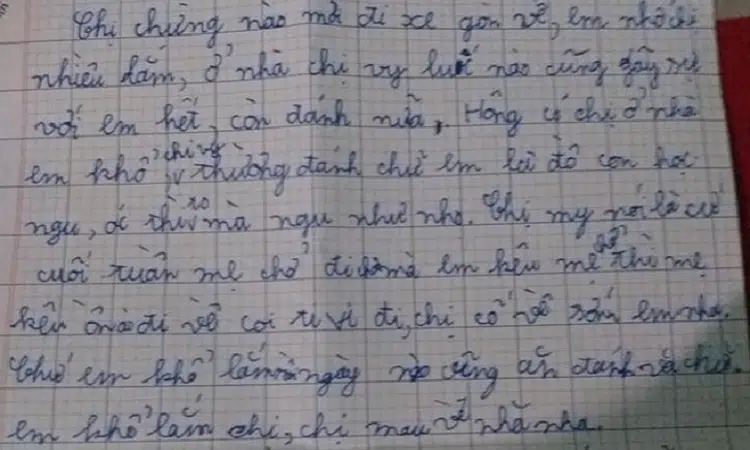 Chị chừng nào mới đi xe gòn về, em nhớ chị
nhiều lắm, ở nhà chị vy lúc nào cũng gây sự
với em hết, còn đánh nữa, Hông có chị ở nhà
em khổ, chị vy thường đánh chữi em là đồ con heo
ngu, óc to mà ngu như nho. Chị my nói là cứ
cuối tuần mẹ chở đi mà em kêu mẹ thì mẹ
kêu đi về coi ti vi đi, chị cố về sớm em nha.
Chứ em khổ lắm ngày nào cũng ăn đánh và chữi.
em khổ lắm chị, chị mau về nhà nha.